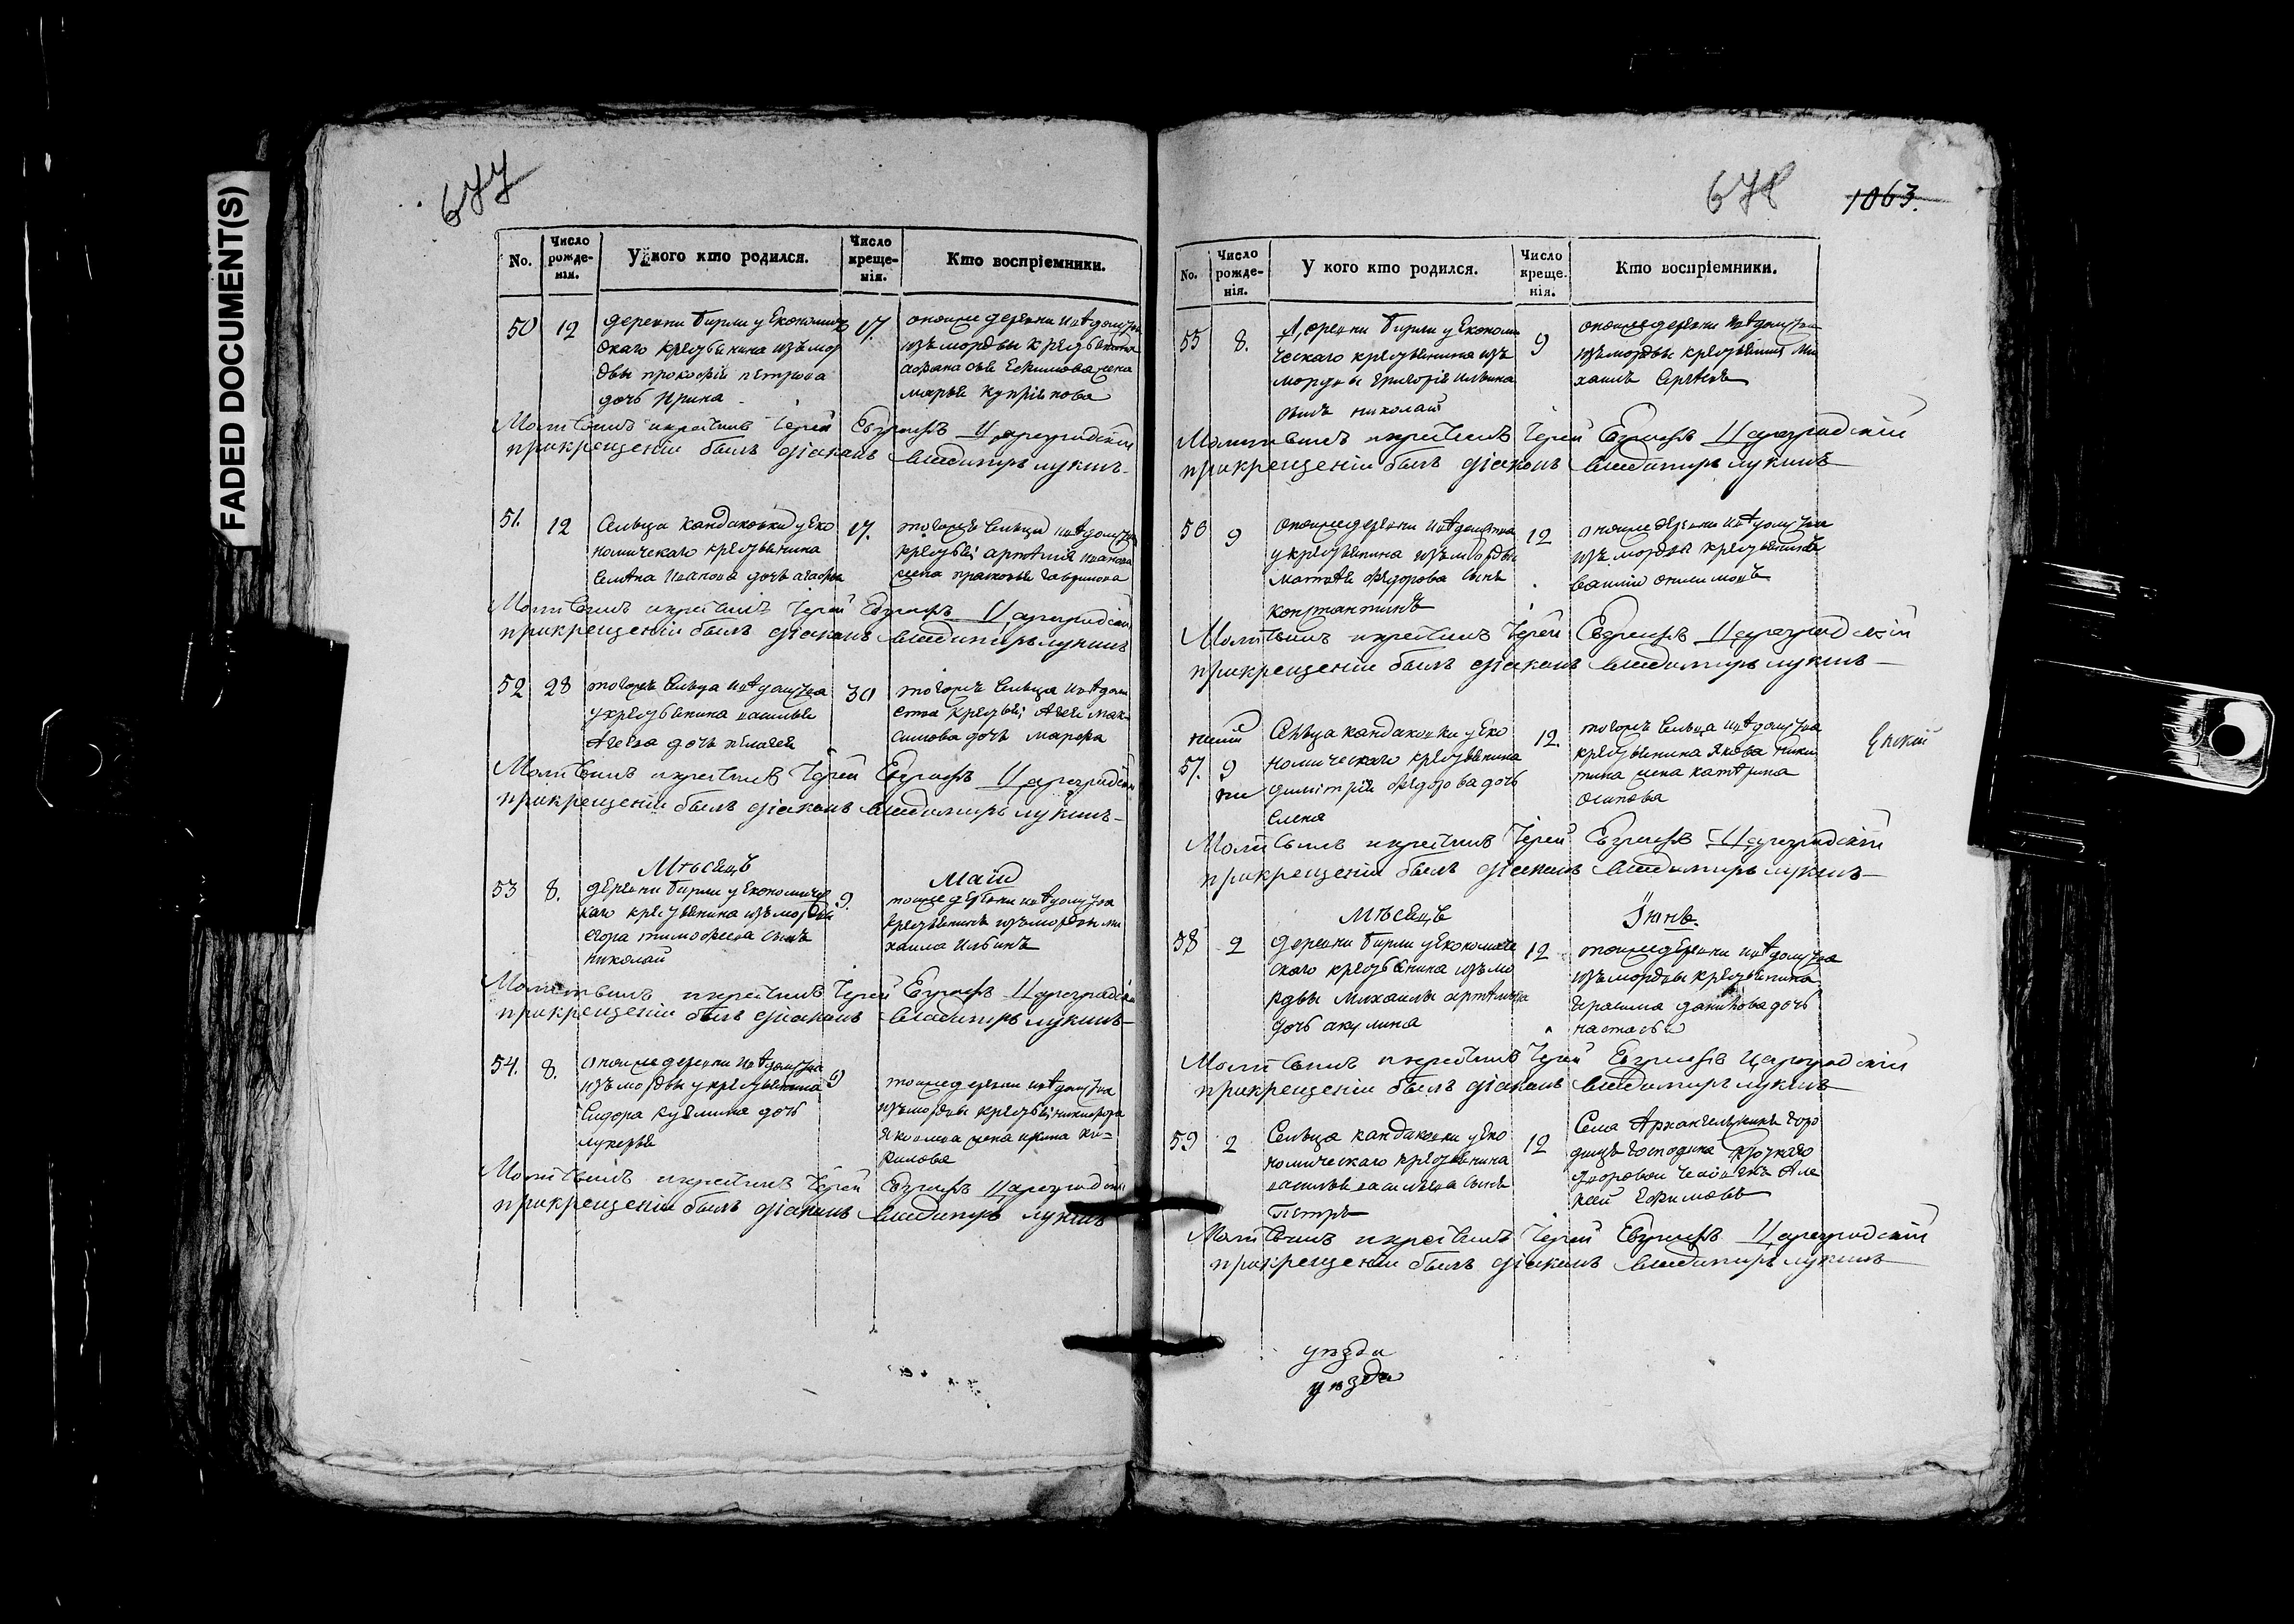 FADED DOCUMENT(S)
677
No.
Число рожде-нія.
У кого кто родился.
Число креще-нія.
Кто воспріемники.
50
12
деревни Бирли у Економиче
скаго крестьянина изъ мор
двы прокофія петрова
дочь Ирина
17.
оноиже деревни
изъ мордвы крестьянина
афанасья Ефимова жена
марья
Молитвилъ и крестилъ Іерей Евграфъ Цареградскій
при крещеніи былъ діаконъ Владимиръ лукинъ
51.
12
Сельца Кандаковки у Еко
номическаго крестьянина
Семена Иванова дочь агафья
17.
тогожъ сельца
артемія иванова
жена прасковья гаврилова
Молитвилъ и крестилъ Іерей Евграфъ Цареградскій
при крещеніи былъ діаконъ Владимиръ лукинъ
52
28
тогожъ Сельца
у крестьянина василья
Агеева дочь пелагея
30
тогожъ Сельца
Агея мак-
симова дочь марфа
Молитвилъ и крестилъ Іерей Евграфъ Цареградскій
при крещеніи былъ діаконъ Владимиръ лукинъ
Мѣсяцъ
Маій
53
8.
деревни Бирли у Економичес
каго крестьянина изъ мордвы
егора тимофеева сынъ
николай
9.
тоиже деревни
крестьянинъ изъ мордвы ми
хаила Ильинъ
Молитвилъ и крестилъ Іерей Евграфъ Цареградскій
при крещеніи былъ діаконъ Владимиръ лукинъ
54.
8.
оноиже деревни
изъ мордвы у крестьянина
Сидора кузмина дочь
лукерья
9
тоиже деревни
изъ мордвы
яковлева жена ирина ки=
рилова
Молитвилъ и крестилъ Іерей Евграфъ Цареградскій
при крещеніи былъ діаконъ Владимиръ лукинъ
678
1063.
No.
Число рожде-нія.
У кого кто родился.
Число креще-нія.
Кто воспріемники.
55
8.
деревни Бирли у Економи
ческаго крестьянина изъ
мордвы григорія ильина
сынъ николай
9
оноиже деревни
изъ мордвы крестьянинъ Ми
хаилъ Сергѣевъ
Молитвилъ и крестилъ Іерей Евграфъ Цареградскій
при крещеніи былъ діаконъ Владимиръ лукинъ
56
9
оноиже деревни
у крестьянина изъ мордвы
матвея федорова сынъ
константинъ
12
оноиже деревни
изъ мордвы крестьянинъ
Молитвилъ и крестилъ Іерей Евграфъ Цареградскій
при крещеніи былъ діаконъ Владимиръ лукинъ
57.
9
Сельца кандаковки у Еко
номическаго крестьянина
димитрія федорова дочь
Елена
12.
тогожъ Сельца
крестьянина Якова Ники
тина жена катерина
осипова
Молитвилъ и крестилъ Іерей Евграфъ Цареградскій
при крещеніи былъ діаконъ Владимиръ лукинъ
Мѣсяцъ
Іюнь.
58
2
деревни Бирли у Економиче
скаго крестьянина изъ мо
рдвы Михаилы артемьева
дочь акулина
12
тоиже деревни
изъ мордвы крестьянина
герасима данилова дочь
настасья
Молитвилъ и крестилъ Іерей Евграфъ Цареградскій
при крещеніи былъ діаконъ Владимиръ лукинъ
59
2
Сельца кандаковки у Еко
номическаго крестьянина
василья васильева сынъ
Петръ
12
Села Архангельскаго Горо
дищъ господина
дворовой человекъ Але
ксей Ефимовъ
Молитвилъ и крестилъ Іерей Евграфъ Цареградскій
при крещеніи былъ діаконъ Владимиръ лукинъ
уѣзда
уѣзда